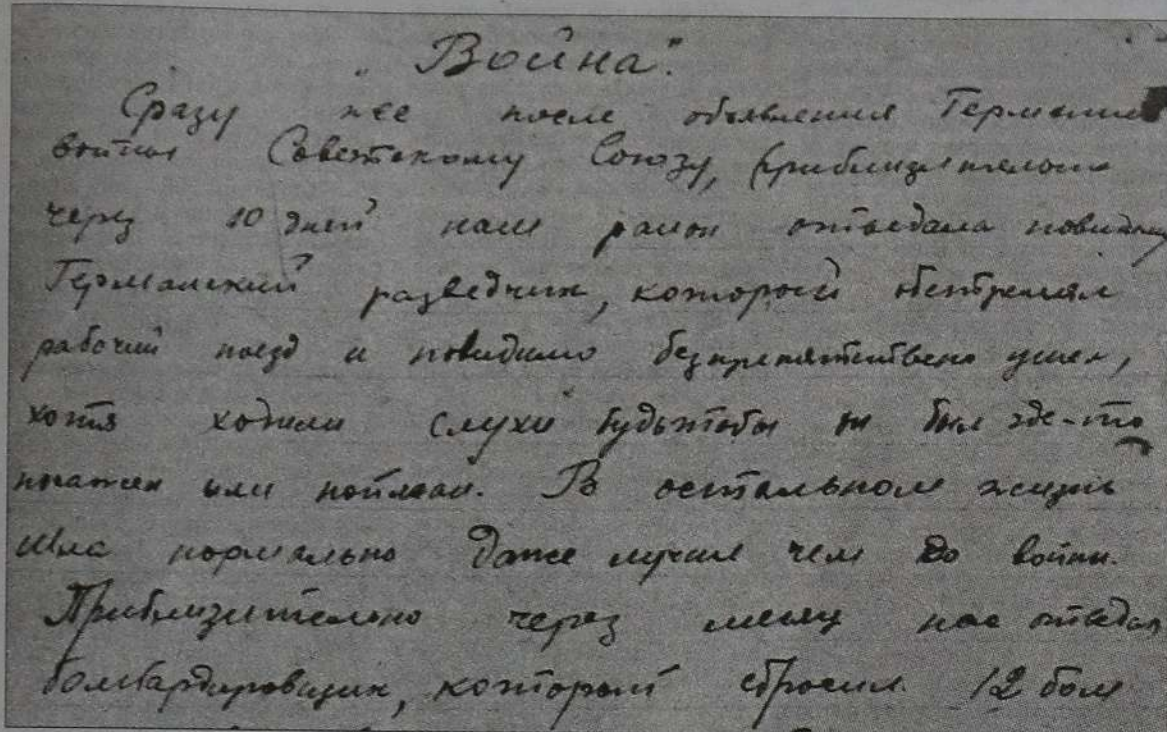 „Война".
Сразу же после объявления Германией
войны Советскому Союзу, приблизительно
через 10 дней наш район отведала повидимому
Германский разведчик, который обстрелял
рабочий поезд и повидимо безпрепятствено ушел,
хотя ходили слухи будьтобы он был где-то
посажен или пойман. В остальном жизнь
шла нормально даже лучше чем до войны.
Приблизительно через месяц нас отведал
бомбардировщик, который сбросил 12 бомб